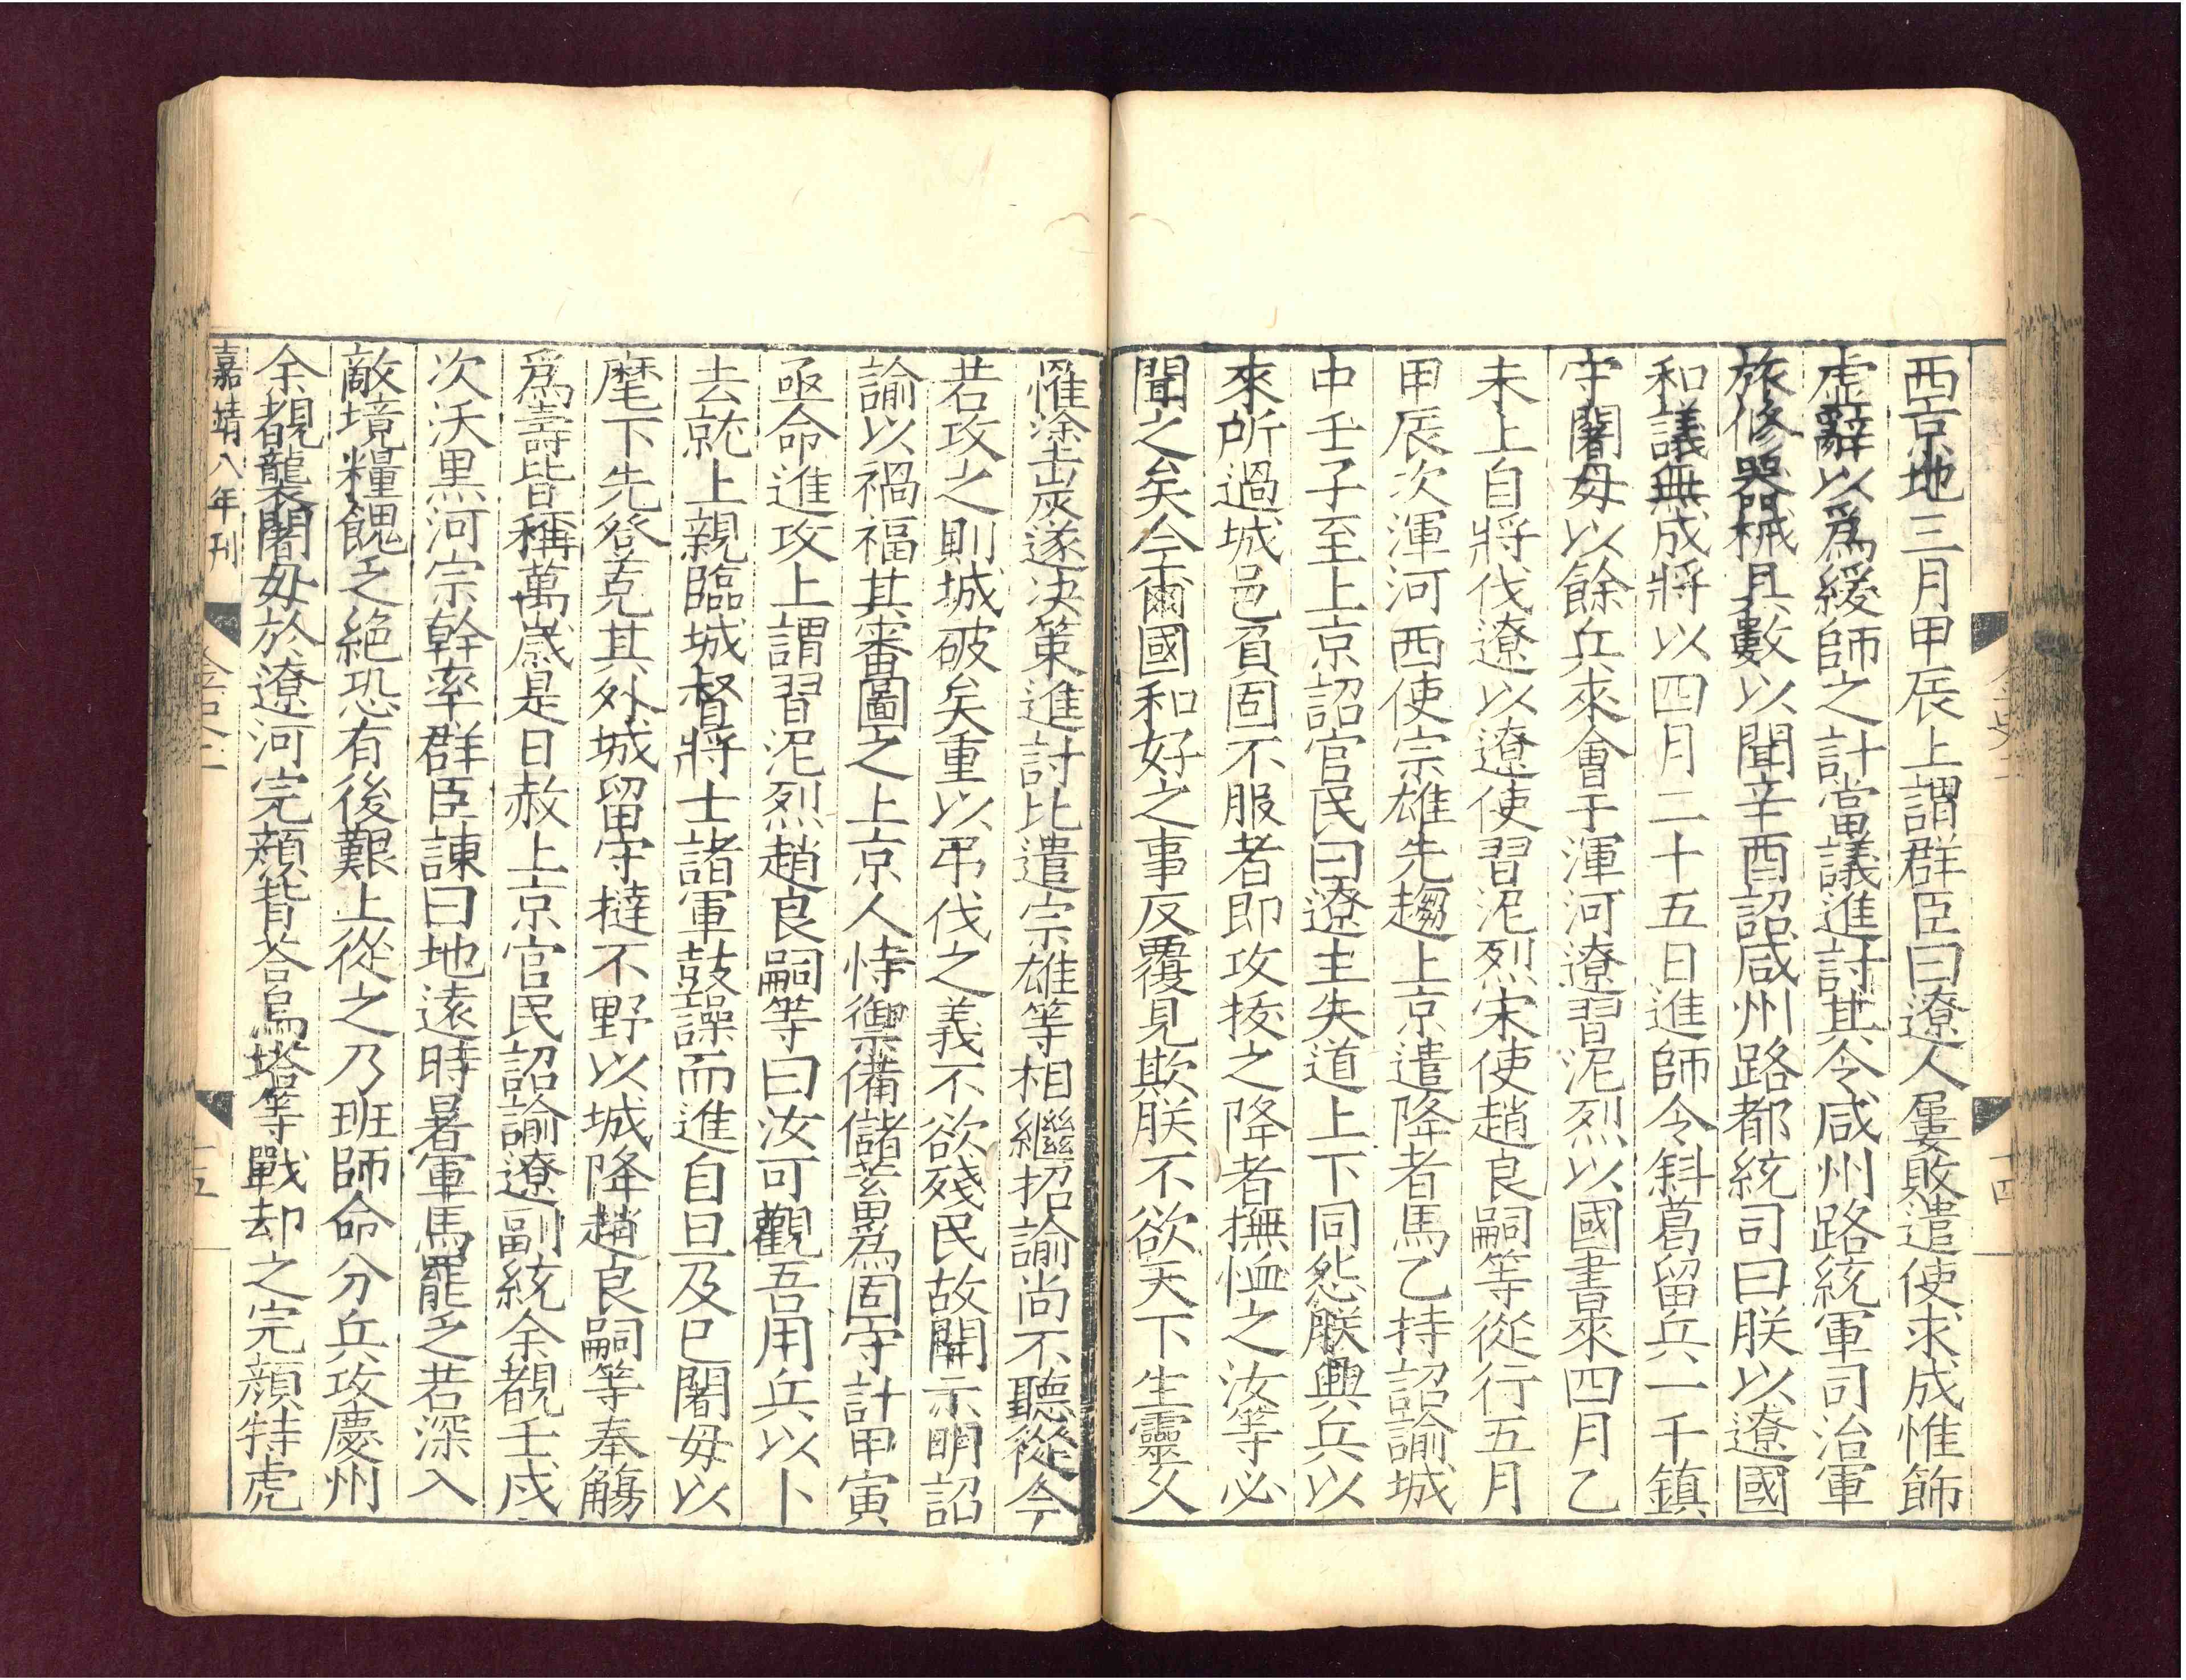 西京地三月甲辰上謂群臣曰遼人屢敗遣使求成惟飾
虛辭以爲緩師之計當議進討其令咸州路統軍司治軍
旅修器械具數以聞辛酉詔咸州路都統司曰朕以遼國
和議無成將以四月二十五日進師令斜葛留兵一千鎮
守闍毋以餘兵來會于渾河遼習泥烈以國書來四月乙
未上自將伐遼以遼使習泥烈宋使趙良嗣等從行五月
甲辰次渾河西使宗雄先趨上京遣降者馬乙持詔諭城
中壬子至上京詔官民曰遼主失道上下同怨朕興兵以
來所過城邑負固不服者即攻拔之降者撫恤之汝等必
聞之矣今爾國和好之事反覆見欺朕不欲天下生靈久
罹塗炭遂決策進討比遣宗雄等相繼招諭尚不聽從今
若攻之則城破矣重以弔伐之義不欲殘民故開示明詔
諭以禍福其審圖之上京人恃禦備儲蓄爲固守計甲寅
亟命進攻上謂習泥烈趙良嗣等曰汝可觀吾用兵以卜
去就上親臨城督將士諸軍鼓譟而進自旦及巳闍毋以
麾下先登克其外城留守撻不野以城降趙良嗣等奉觴
爲壽皆稱萬歲是日赦上京官民詔諭遼副統余覩壬戌
次沃黑河宗幹率群臣諫曰地遠時暑軍馬罷乏若深入
敵境糧餽乏絕恐有後艱上從之乃班師命分兵攻慶州
余覩襲闍毋於遼河完顏背荅烏塔等戰却之完顏特虎
嘉靖八年刊
金史二
十五
金史二
十四